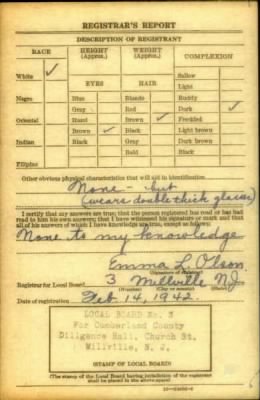 REGISTRAR'S REPORT
DESCRIPTION OF REGISTRANT
RACE HEIGHT (Approx.) WEIGHT (Approx.) COMPLEXION
White ✓ Sallow
EYES HAIR Light
Negro Blue Blonde Ruddy
Gray Red Dark ✓
Oriental Hazel Brown ✓ Freckled
Brown ✓ Black Light brown
Indian Black Gray Dark brown
Bald Black
Filipino
Other obvious physical characteristics that will aid in identification
None - but
(wears double thick glasses)
I certify that my answers are true; that the person registered has read or has had
read to him his own answers; that I have witnessed his signature or mark and that
all of his answers of which I have knowledge are true, except as follows:
None to my knowledge
Emma L. Olson
(Signature of registrar)
Registrar for Local Board 3 Millville N.J.
Date of registration Feb. 14, 1942.
LOCAL BOARD No. 3
For Cumberland County
Diligence Hall, Church St.
Millville, N. J.
(STAMP OF LOCAL BOARD)
(The stamp of the Local Board having jurisdiction of the registrant
shall be placed in the above space.)